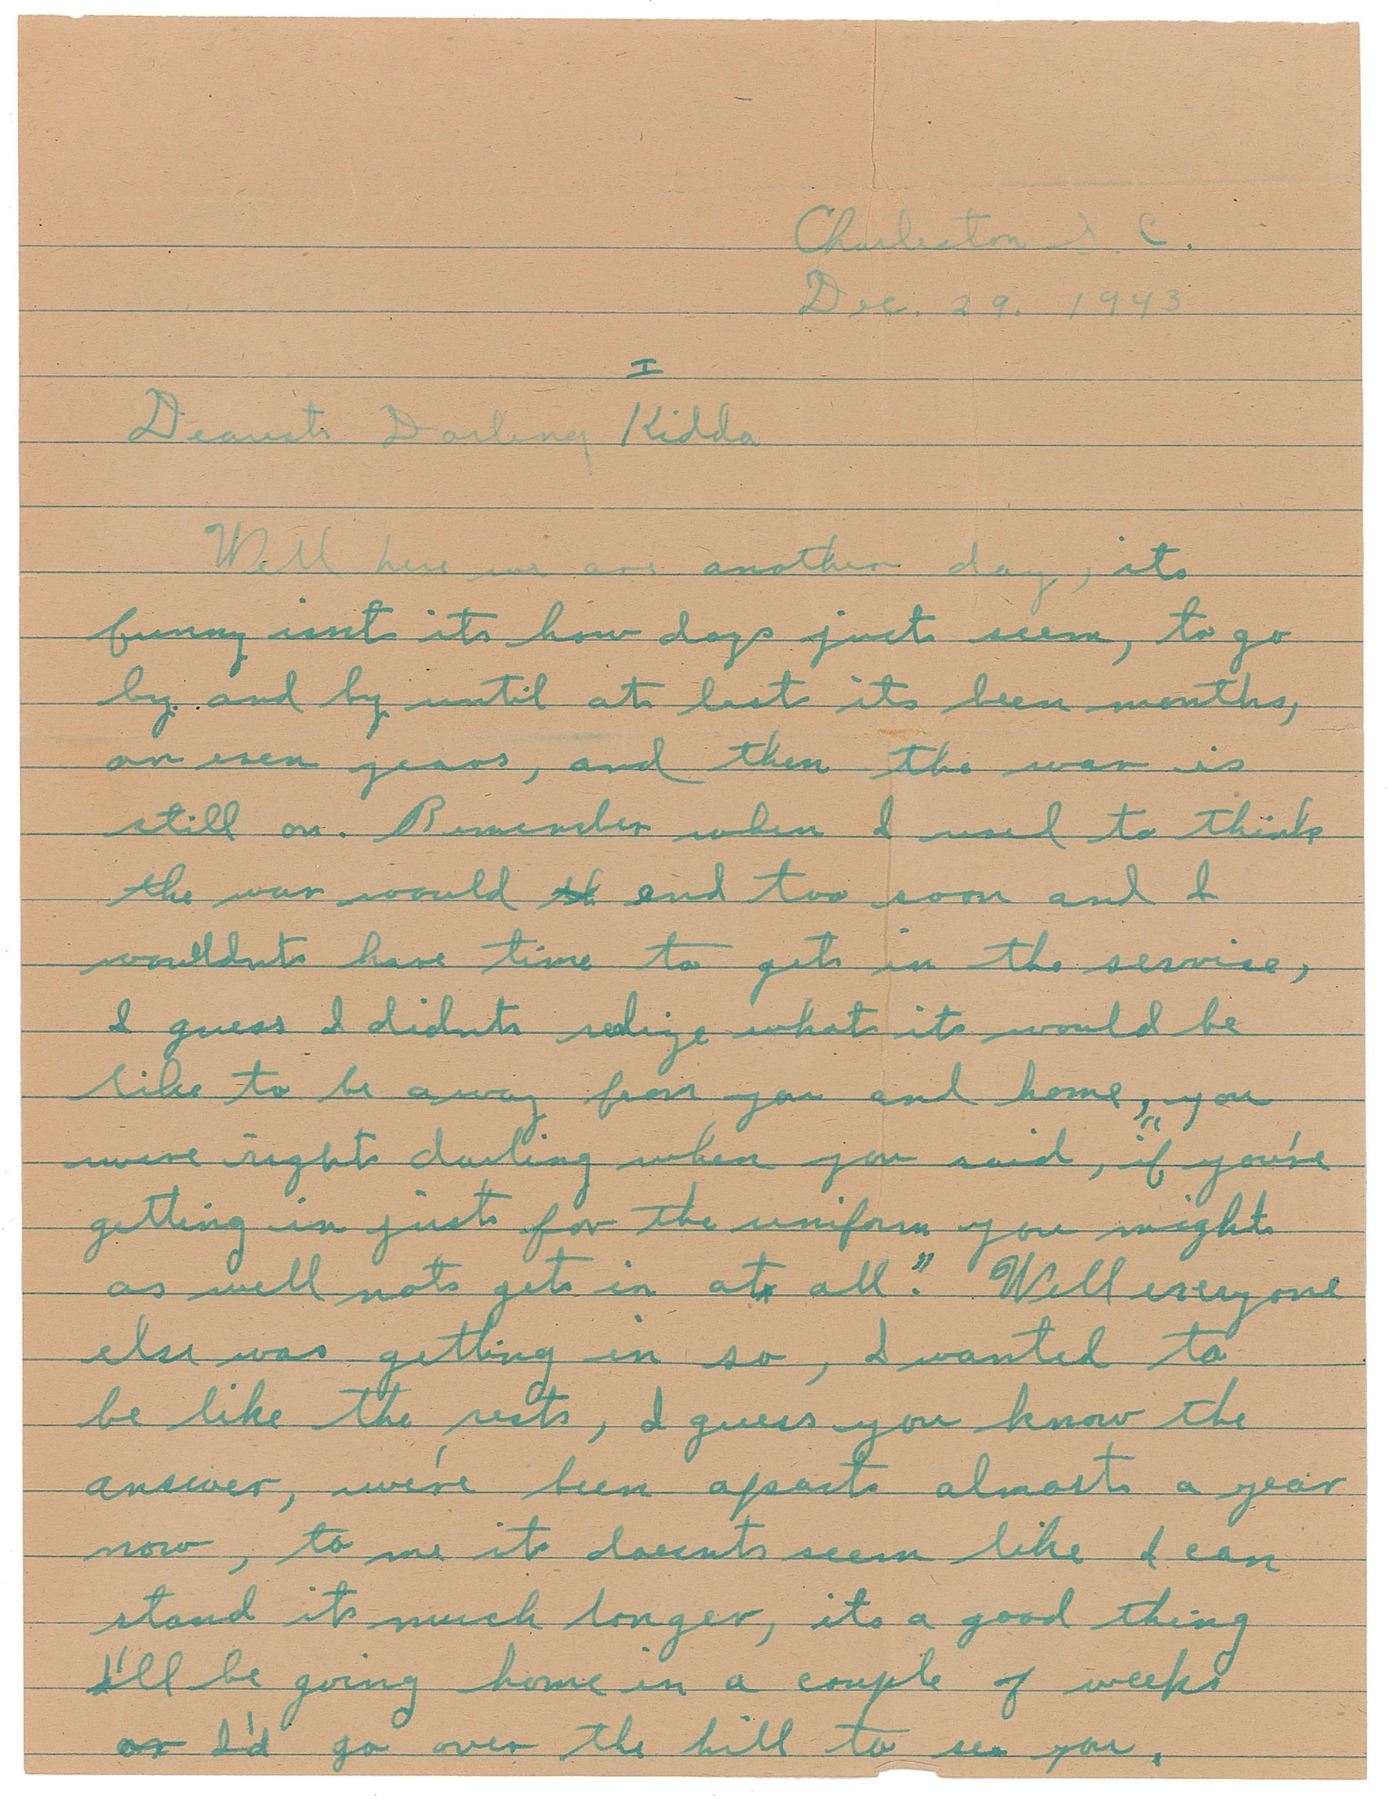 Charleston S. C.
Dec. 29. 1943
I
Dearest Darling Kidda
Well here we are another day, its
funny isnt it how days just seem, to go
by. and by until at last its been months,
or even years, and then the war is
still on. Remember when I used to think
the war would end too soon and I
wouldnt have time to get in the service,
I guess I didnt realize what it would be
like to be away from you and home, you
were right darling when you said, "if you're
getting in just for the uniform you might
as well not get in at all." Well everyone
else was getting in so, I wanted to
be like the rest, I guess you know the
answer, we've been apart almost a year
now, to me it doesnt seem like I can
stand it much longer, its a good thing
I'll be going home in a couple of weeks
or I'd go over the hill to see you.